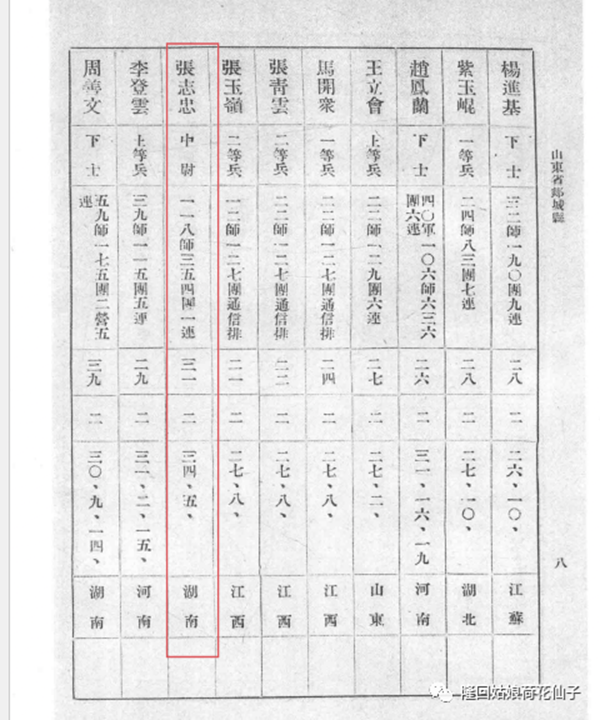 山東省郯城縣
八
楊進基 下士 三二師一九〇團九連 二八 二 二六、一〇、 江蘇
紫玉崐 一等兵 二四師八三團七連 二八 二 二七、一〇、 湖北
趙鳳蘭 下士 四〇軍一〇六師六三六
團六連 二六 二 三一、一六、一九 河南
王立會 上等兵 二二師一二九團六連 二七 二 二七、二、 山東
馬開衆 一等兵 二二師一二七團通信排 二四 二 二七、八、 江西
張青雲 二等兵 二二師一二七團通信排 二二 二 二七、八、 江西
張玉嶺 二等兵 一二師一二七團通信排 二一 二 二七、八、 江西
張志忠 中尉 一一八師三五四團一連 三一 二 三四、五、 湖南
李登雲 上等兵 三九師一一五團五連 二九 二 三一、二、一五、 河南
周善文 下士 五九師一七五團二營五
連 三九 二 三〇、九、一四、 湖南
隆回姑娘荷花仙子